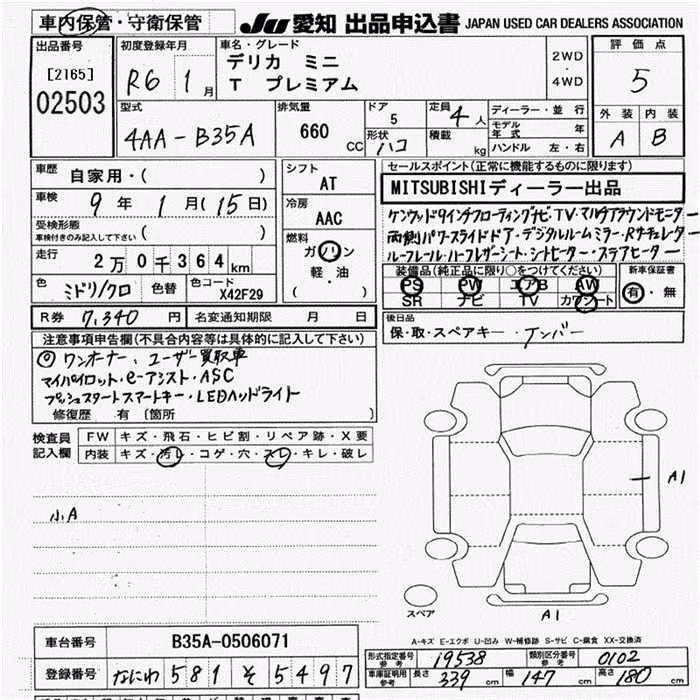 車内保管・守衛保管
JU 愛知 出品申込書 JAPAN USED CAR DEALERS ASSOCIATION
出品番号
[2165]
02503
初度登録年月
R6 1月
車名・グレード
デリカ ミニ
T プレミアム
2WD
・
4WD
評価点
5
外装 内装
A B
型式
4AA-B35A
排気量
660 CC
ドア
5
形状
ハコ
定員
4人
積載
kg
ディーラー・並行
モデル年式 年
ハンドル 左・右
車歴
自家用・( )
車検
9年 1月(15日)
受検形態
車検付きのみ記入して下さい ( )
走行
2万0千364km
色
ミドリ/クロ
色替
色コード
X42F29
シフト
AT
冷房
AAC
燃料
ガソリン
軽・油
( )
セールスポイント(正常に機能するものに限ります)
MITSUBISHIディーラー出品
ケンウッド9インチフローティングナビ TV・マルチアラウンドモニター
両側パワースライドドア・デジタルルームミラー・Rサーキュレーター
ルーフレール・ハーフレザーシート・シートヒーター・ステアヒーター
装備品(純正品に限り○をつけてください)
PS PW エアB AW
SR ナビ TV カワシート
新車保証書
有・無
R券 7,340円
名変通知期限 月 日
後日品
保・取・スペアキー・ナンバー
注意事項申告欄(不具合内容等は具体的に記入して下さい)
◎ワンオーナー、ユーザー買取車
マイパイロット・e-アシスト・ASC
プッシュスタートスマートキー・LEDヘッドライト
修復歴 有 〔箇所 〕
検査員記入欄
FW キズ・飛石・ヒビ割・リペア跡・X要
内装 キズ・汚レ・コゲ・穴・スレ・キレ・破レ
小A
A1
A1
スペア
A-キズ E-エクボ U-凹み W-補修跡 S-サビ C-腐食 XX-交換済
車台番号 B35A-0506071
登録番号 なにわ 581 そ 5497
形式指定番号 参考 19538
類別区分番号 参考 0102
車庫証明用 参考 長さ 339cm 幅 147cm 高さ 180cm